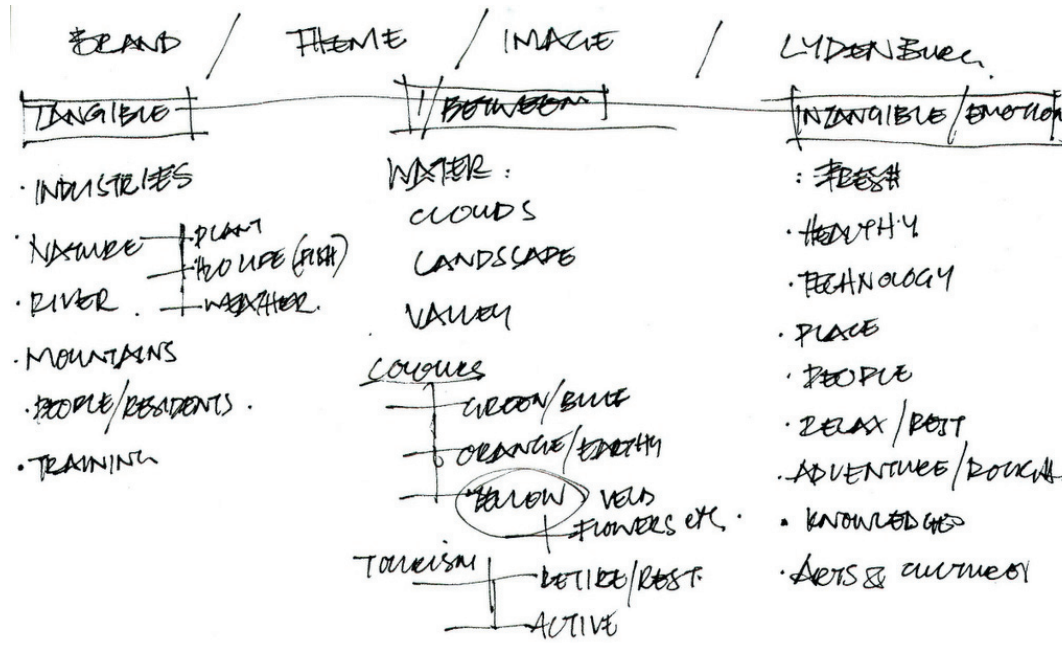 BRAND / THEME / IMAGE / LYDENBURG.
TANGIBLE
· INDUSTRIES
· NATURE
PLANT
H2O LIFE (FISH)
WEATHER.
· RIVER.
· MOUNTAINS
· PEOPLE/RESIDENTS.
· TRAINING
// BETWEEN
WATER:
CLOUDS
LANDSCAPE
VALLEY
COLOURS
GREEN/BLUE
ORANGE/EARTHY
YELLOW VELD
FLOWERS etc.
TOURISM
RETIRE/REST.
ACTIVE
INTANGIBLE/EMOTION
: FRESH
· HEALTHY
· TECHNOLOGY
· PLACE
· PEOPLE
· RELAX/REST
· ADVENTURE/
· KNOWLEDGE
· ARTS &